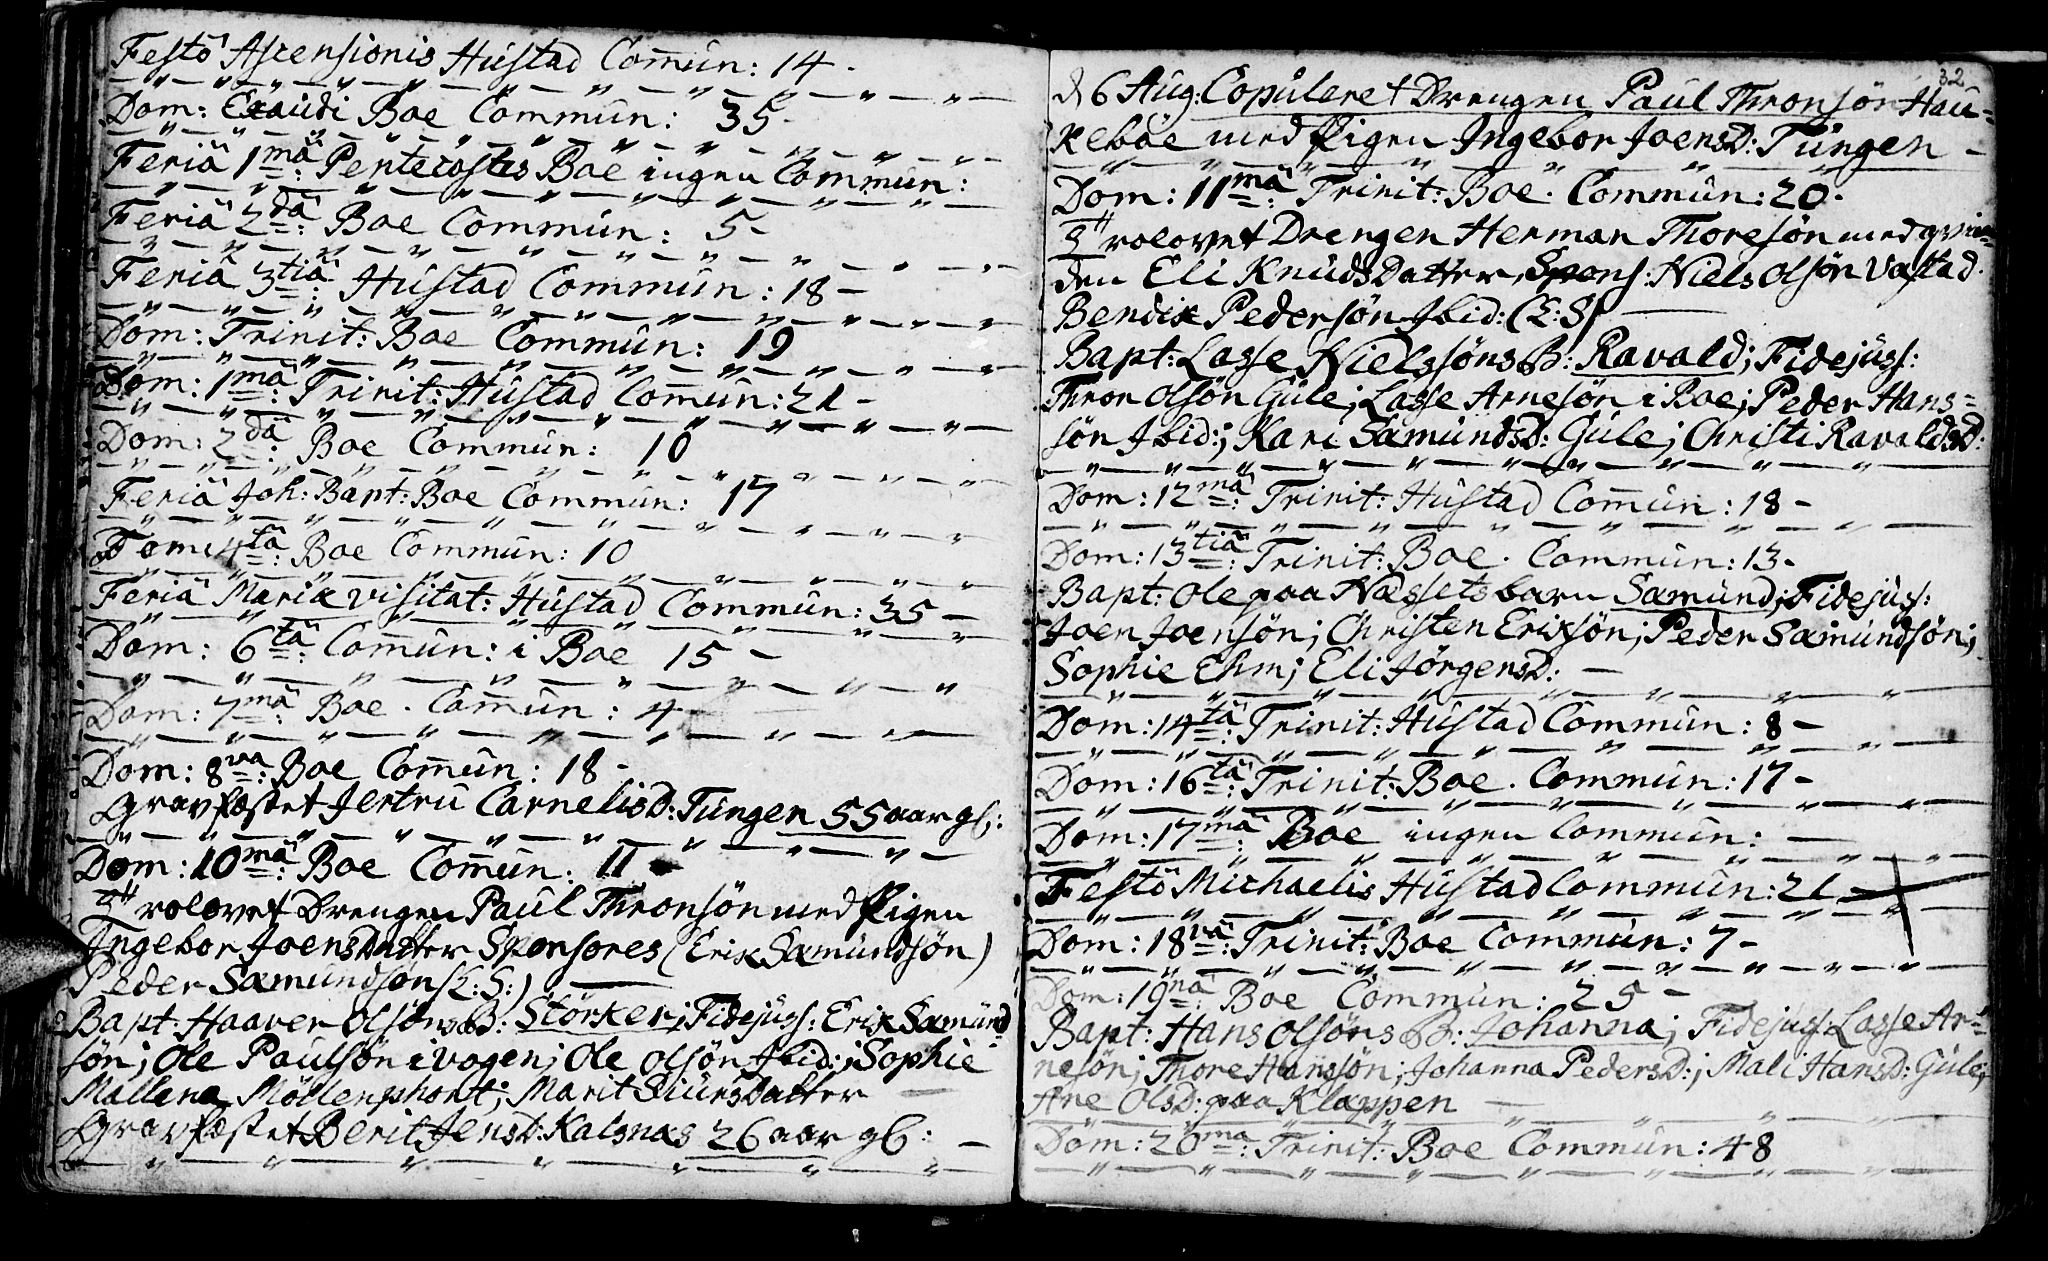 Festô Ascensionis Hustad Comun: 14 -
Dom: Exaudi Boe Commun: 35 -
Feriâ 1mâ: Pentecostes Boe ingen Commun:
Feriâ 2dâ: Boe Commun: 5 -
Feriâ 3tiâ: Hustad Commun: 18 -
Dom: Trinit: Boe Commun: 19
Dom: 1mâ: Trinit: Hustad Comun: 21 -
Dom: 2dâ: Boe Commun: 10
Feriâ Joh: Bapt: Boe Commun: 17
Dom: 4tâ: Boe Commun: 10
Feriâ Mariæ visitat: Hustad Commun: 35 -
Dom: 6tâ: Comun: i Boe 15 -
Dom: 7mâ: Boe. Comun: 4 -
Dom: 8va: Boe Comun: 18 -
Gravfæstet Jertru CarnelisD: Tungen 55 aar gl:
Dom: 10mâ: Boe Comun: 11
Trolovet Drengen Paul Thronsön med Pigen
Ingebor JoensDatter Sponsores (Erix Sæmundsön)
Peder Sæmundsön (L: S:)
Bapt: Haaver Olsöns B: Störker; Fidejuss: Erix Sæmund
sön; Ole Paulsön i vogen; Ole Olsön Ibid:; Sophie
Mallena Möllenphort; Marit SiursDatter
Gravfæstet Berit JensD: Kalsnæs 26 aar gl: -
32
d 6 Aug: Copuleret Drengen Paul Thronsön Hau=
keböe med Pigen Ingebor JoensD: Tungen -
Dom: 11mâ: Trinit: Boe. Commun: 20.
Trolovet Drengen Herman Thoresön med qvin=
den Eli KnudsDatter, Spons: Niels Olsön Vastad.
Bendix Pedersön Ibid: (L: S)
Bapt: Lasse Nielssöns B: Ravald; Fidejuss:
Thron Olsön Gule; Lasse Arnesön i Boe; Peder Hans=
sön Ibid:; Kari SæmundsD: Gule; Christi RavaldsD:
Dom: 12mâ: Trinit: Hustad Comun: 18 -
Dom: 13tiâ: Trinit: Boe. Commun: 13 -
Bapt: Ole paa Næssets barn Sæmund; Fidejuss:
Joen Joensön; Christen Erixsön; Peder Sæmundsön;
Sophie Ehm; Eli JörgensD: -
Dom: 14tâ: Trinit: Hustad Commun: 8 -
Dom: 16tâ: Trinit: Boe. Commun: 17 -
Dom: 17mâ: Boe ingen Commun: -
Festô Michaelis Hustad Commun: 21 -
Dom: 18vâ: Trinit: Boe Commun: 7 -
Dom: 19nâ: Boe Commun: 25 -
Bapt: Hans Olsöns B: Johanna; Fidejuss: Lasse Ar=
nesön; Thore Hanssön; Johanna PedersD:; Mali HansD: Gule;
Ane OlsD: paa Klappen -
Dom: 20ma: Trinit: Boe Commun: 48